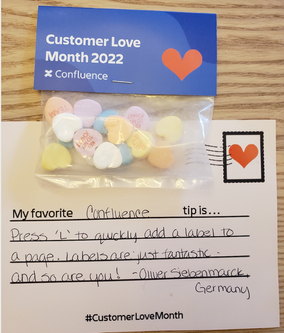 Customer Love
Month 2022
Confluence
My favorite Confluence tip is...
Press 'L' to quickly add a label to
a page. Labels are just fantastic -
and so are you! - Oliver Siebenmarck,
Germany
#CustomerLoveMonth